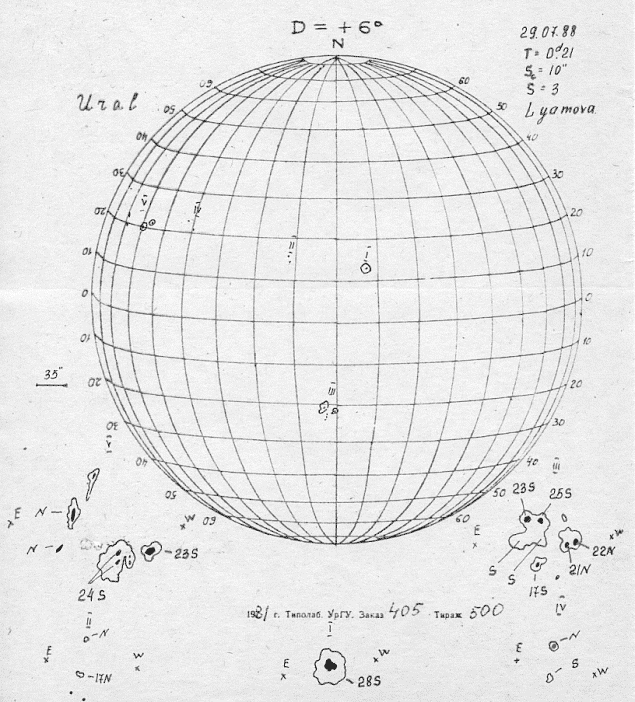 D = + 6°
N
29.07.88
T = 0ᵈ.21
S = 3
Lyamova
Ural
60 60
50 50
40 40
30 30
20 20
10 10
0 0
10 10
20 20
30 30
40 40
50 50
60 60
V
IV
II
I
III
35"
V
E
N
W
N
23S
24S
III
23S 25S
E
W
22N
S
S
21N
17S
1981 г. Типолаб. УрГУ. Заказ 405 Тираж 500
II
N
E
W
17N
I
E
W
28S
IV
N
E
S
W